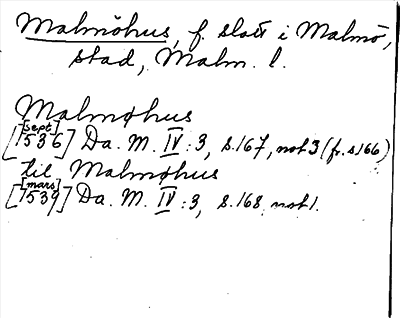 Malmöhus, f. slott i Malmö,
stad, Malm. l.
Malmøhus
[sept]
[1536] Da. M. IV:3, s.167, not 3 (fr. s166)
til Malmøhus
[mars]
[1539] Da. M. IV:3, s.168 not 1.